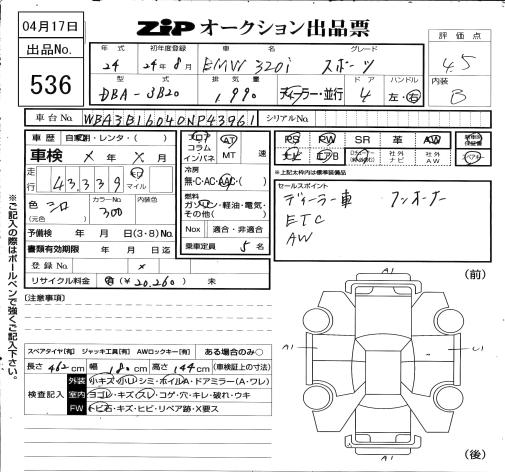 04月17日
ZiP オークション出品票
出品No.
536
年式 初年度登録 車名 グレード
24 24年8月 BMW 320i スポーツ
型式 排気量 ドア ハンドル
DBA-3B20 1,990 ディーラー・並行 4 左・右
評価点
4.5
内装
B
車台No. WBA3B16040NP43961 シリアルNo.
車歴 自家用・レンタ・( )
車検 × 年 × 月
走行 43,339 キロ マイル
色 シロ (元色) カラーNo. 300 内装色
予備検 年 月 日(3・8)No.
書類有効期限 年 月 日迄
登録No. ×
リサイクル料金 有(¥20,260) 未
フロア コラム インパネ AT MT 速
冷房
無・C・AC・AAC・( )
燃料
ガソリン・軽油・電気・その他( )
Nox 適合・非適合
乗車定員 5 名
PS PW SR 革 AW
ナビ 社外AW
※上記太枠内は標準装備品
セールスポイント
ディーラー車 ワンオーナー
ETC
AW
(注意事項)
※ご記入の際はボールペンで強くご記入下さい。
スペアタイヤ[有] ジャッキ工具[有] AWロックキー[有] ある場合のみ○
長さ 462 cm 幅 180 cm 高さ 144 cm (車検証上の寸法)
検査記入
外装 小キズ・小U・シミ・ボイルA・ドアミラー(A・ワレ)
室内 ヨゴレ・キズ・スレ・コゲ・穴・キレ・破れ・ウキ
FW トビ石・キズ・ヒビ・リペア跡・X要ス
(前)
A1
A1
U1
A1
(後)